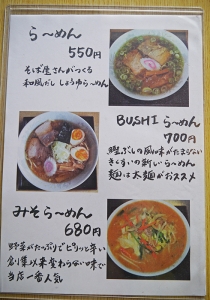 ら〜めん
550円
そば屋さんがつくる
和風だし しょうゆら〜めん
BUSHI ら〜めん
700円
鰹ぶしの風味がたまらない
きくすいの新しいら〜めん
麺は太麺がおススメ
みそら〜めん
680円
野菜がたっぷりでピリッと辛い
創業以来変わらない味で
当店一番人気